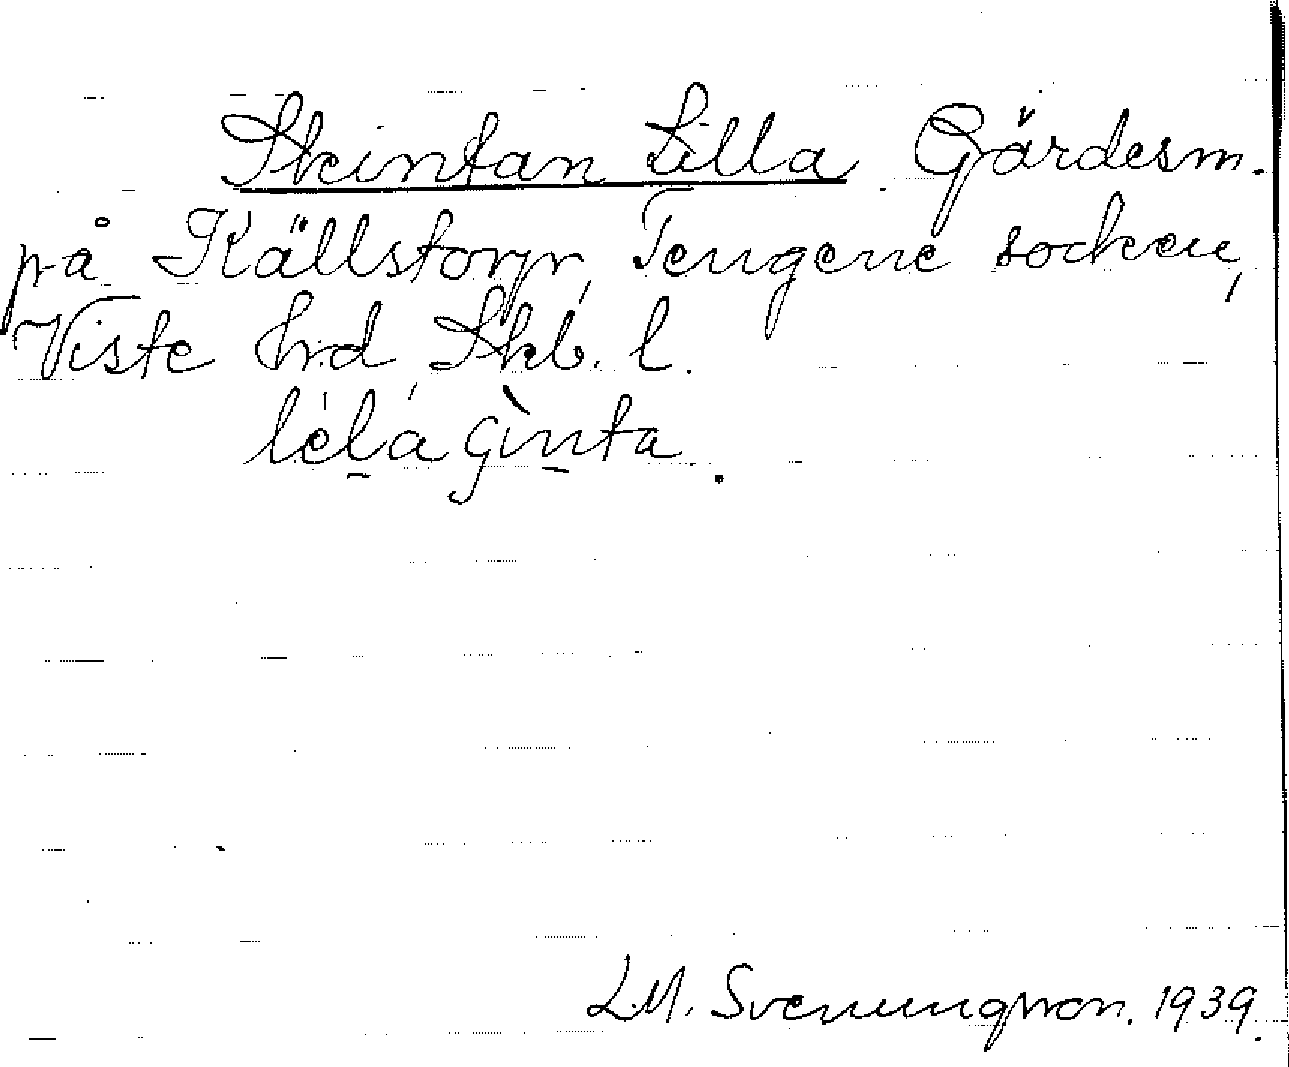 Skintan Lilla Gärdesm.
på Källstorp, Tengene socken,
Viste hrd, Skb. l.
lela ginta.
L.M. Svenungsson. 1939.